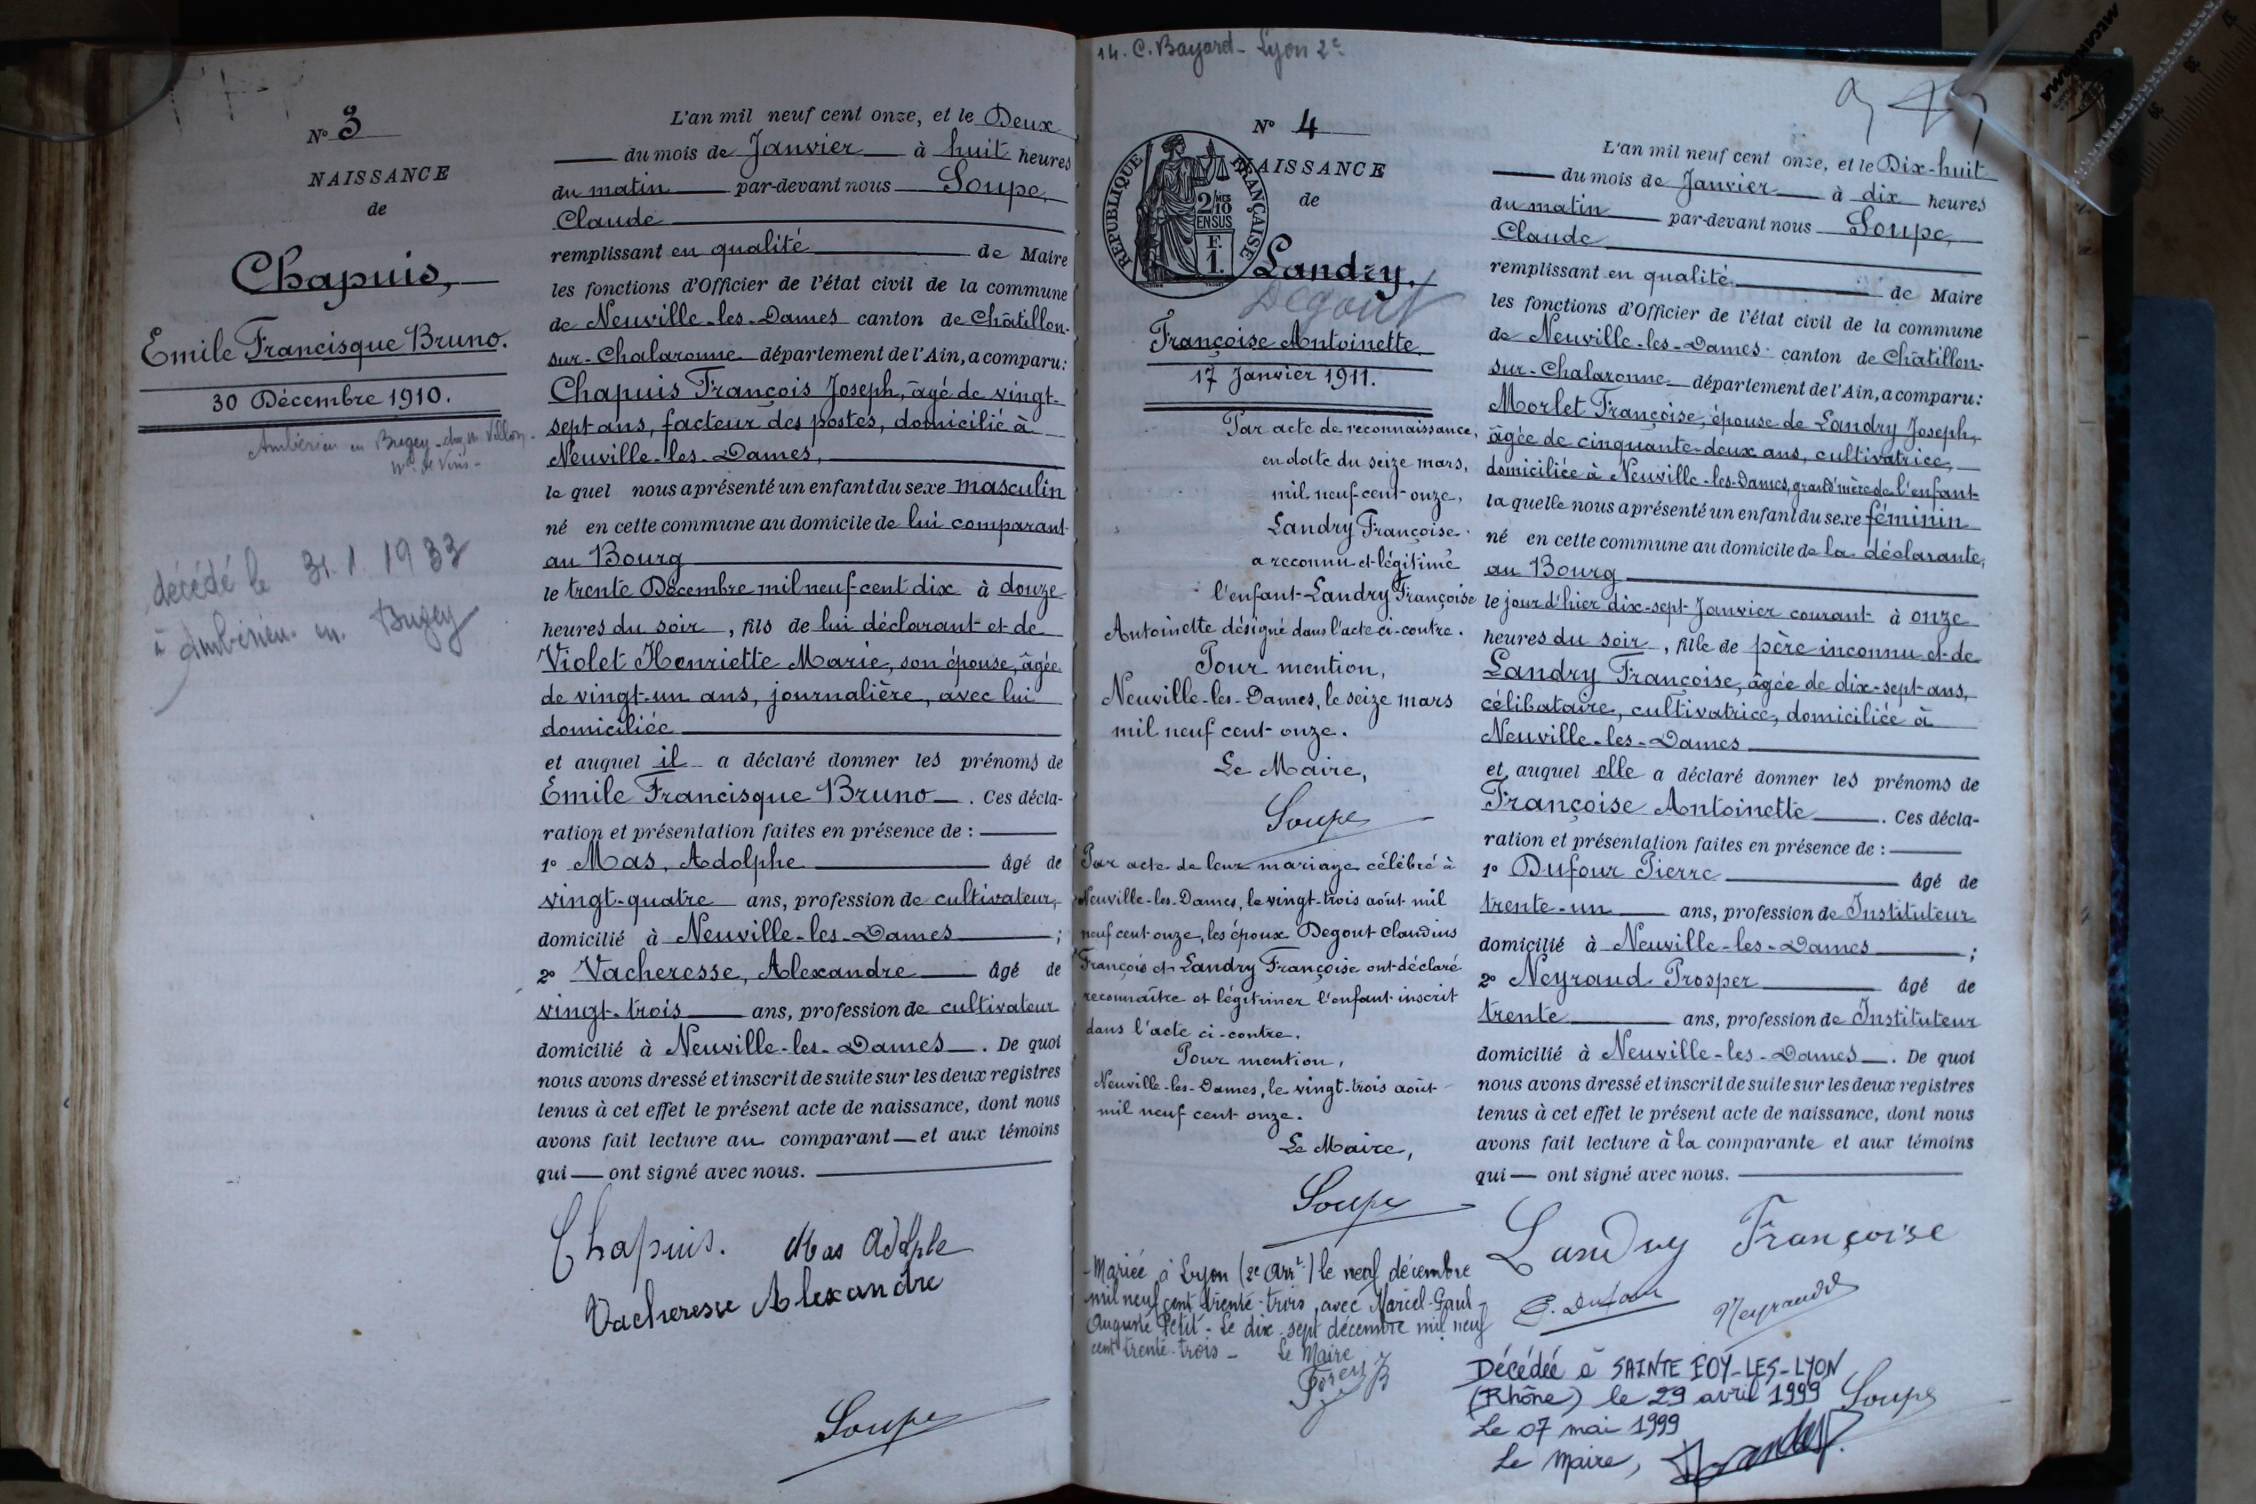 N° 3
NAISSANCE
de
Chapuis,
Emile Francisque Bruno.
30 Décembre 1910.
Ambérieu en Bugey - chez M. Villon
md de Vins -
décédé le 31.1.1933
à Ambérieu en Bugey
L'an mil neuf cent onze, et le Deux
du mois de Janvier à huit heures
du matin par-devant nous Soupe,
Claude
remplissant en qualité de Maire
les fonctions d'Officier de l'état civil de la commune
de Neuville-les-Dames canton de Châtillon-
sur-Chalaronne département de l'Ain, a comparu:
Chapuis François Joseph, âgé de vingt-
sept ans, facteur des postes, domicilié à
Neuville-les-Dames,
le quel nous a présenté un enfant du sexe masculin
né en cette commune au domicile de lui comparant
au Bourg
le trente Décembre mil neuf cent dix à douze
heures du soir, fils de lui déclarant et de
Violet Henriette Marie, son épouse, âgée
de vingt-un ans, journalière, avec lui
domiciliée
et auquel il a déclaré donner les prénoms de
Emile Francisque Bruno. Ces décla-
ration et présentation faites en présence de :
1° Mas, Adolphe âgé de
vingt-quatre ans, profession de cultivateur,
domicilié à Neuville-les-Dames ;
2° Vacheresse, Alexandre âgé de
vingt-trois ans, profession de cultivateur
domicilié à Neuville-les-Dames. De quoi
nous avons dressé et inscrit de suite sur les deux registres
tenus à cet effet le présent acte de naissance, dont nous
avons fait lecture au comparant et aux témoins
qui ont signé avec nous.
Chapuis. Mas Adolphe
Vacheresse Alexandre
Soupe
14. C. Bayard - Lyon 2e
N° 4
NAISSANCE
de
RÉPUBLIQUE FRANÇAISE
2/10 MES
EN SUS
F.
1.
Landry.
Degout
Françoise Antoinette
17 Janvier 1911.
Par acte de reconnaissance,
en date du seize mars,
mil neuf cent onze,
Landry Françoise
a reconnu et légitimé
l'enfant Landry Françoise
Antoinette désigné dans l'acte ci-contre.
Pour mention,
Neuville-les-Dames, le seize mars
mil neuf cent onze.
Le Maire,
Soupe
Par acte de leur mariage célébré à
Neuville-les-Dames, le vingt-trois août mil
neuf cent onze, les époux Degout Claudius
François et Landry Françoise ont déclaré
reconnaître et légitimer l'enfant inscrit
dans l'acte ci-contre.
Pour mention,
Neuville-les-Dames, le vingt-trois août
mil neuf cent onze.
Le Maire,
Soupe
Mariée à Lyon (2e arrt) le neuf décembre
mil neuf cent trente-trois, avec Marcel-Paul-
Auguste Petit - Le dix-sept décembre mil neuf
cent trente-trois - Le Maire
L'an mil neuf cent onze, et le Dix-huit
du mois de Janvier à dix heures
du matin par-devant nous Soupe,
Claude
remplissant en qualité de Maire
les fonctions d'Officier de l'état civil de la commune
de Neuville-les-Dames canton de Châtillon-
sur-Chalaronne département de l'Ain, a comparu:
Morlet Françoise, épouse de Landry Joseph,
âgée de cinquante-deux ans, cultivatrice,
domiciliée à Neuville-les-Dames, grand'mère de l'enfant
la quelle nous a présenté un enfant du sexe féminin
né en cette commune au domicile de la déclarante,
au Bourg
le jour d'hier dix-sept Janvier courant à onze
heures du soir, fille de père inconnu et de
Landry Françoise, âgée de dix-sept ans,
célibataire, cultivatrice, domiciliée à
Neuville-les-Dames
et auquel elle a déclaré donner les prénoms de
Françoise Antoinette. Ces décla-
ration et présentation faites en présence de :
1° Dufour Pierre âgé de
trente-un ans, profession de Instituteur
domicilié à Neuville-les-Dames ;
2° Neyraud Prosper âgé de
trente ans, profession de Instituteur
domicilié à Neuville-les-Dames. De quoi
nous avons dressé et inscrit de suite sur les deux registres
tenus à cet effet le présent acte de naissance, dont nous
avons fait lecture à la comparante et aux témoins
qui ont signé avec nous.
Landry Françoise
P. Dufour Neyraud
Soupe
Décédée à SAINTE FOY-LES-LYON
(Rhône) le 29 avril 1999
Le 07 mai 1999
Le Maire,